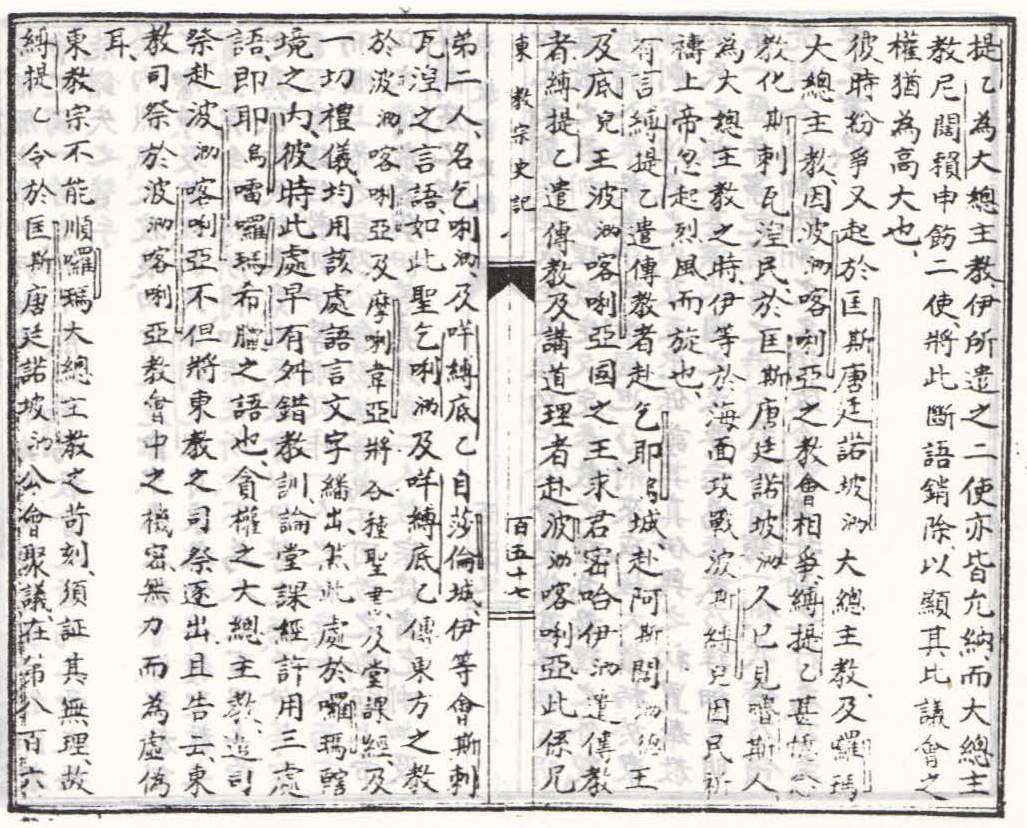 提乙為大總主教伊所遣之二使亦皆允納而大總主
教尼闊賴申飭二使將此斷語銷除以顯其比議會之
權猶為高大也、
彼時紛爭又起於匡斯唐廷諾坡泐大總主教及囉瑪
大總主教因波泐喀唎亞之教會相爭縛提乙甚
教化斯刺瓦湟民於匡斯唐廷諾坡泐久已見嚕斯人
為大總主教之時伊等於海面攻戰波斯縛兒因民祈
禱上帝忽起烈風而旋也、
有言縛提乙遣傳教者赴乞耶烏城赴阿斯闊泐德王
及底兒王波泐喀唎亞国之王求君密哈伊泐遣傳教
者縛提乙遣傳教及講道理者赴波泐喀唎亞此係兄
東教宗史記
百五十七
弟二人、名乞唎泐及咩縛底乙自莎倫城、伊等會斯刺
瓦湟之言語、如此聖乞唎泐及咩縛底乙傳東方之教
於波泐喀唎亞及摩唎韋亞將各種聖書及堂課經及
一切禮儀、均用該處語言文字繙出、然此處於囉瑪轄
境之內、彼時此處早有舛錯教訓、論堂課經許用三處
語、即耶烏嚕囉瑪希臘之語也、貪權之大總主教遣司
祭赴波泐喀唎亞不但將東教之司祭逐出、且告云、東
教司祭於波泐喀唎亞教會中之機密無力而為虛偽
耳、
東教宗不能順囉瑪大總主教之苛刻、須証其無理、故
縛提乙令於匡斯唐廷諾坡泐公會聚議、在第八百六